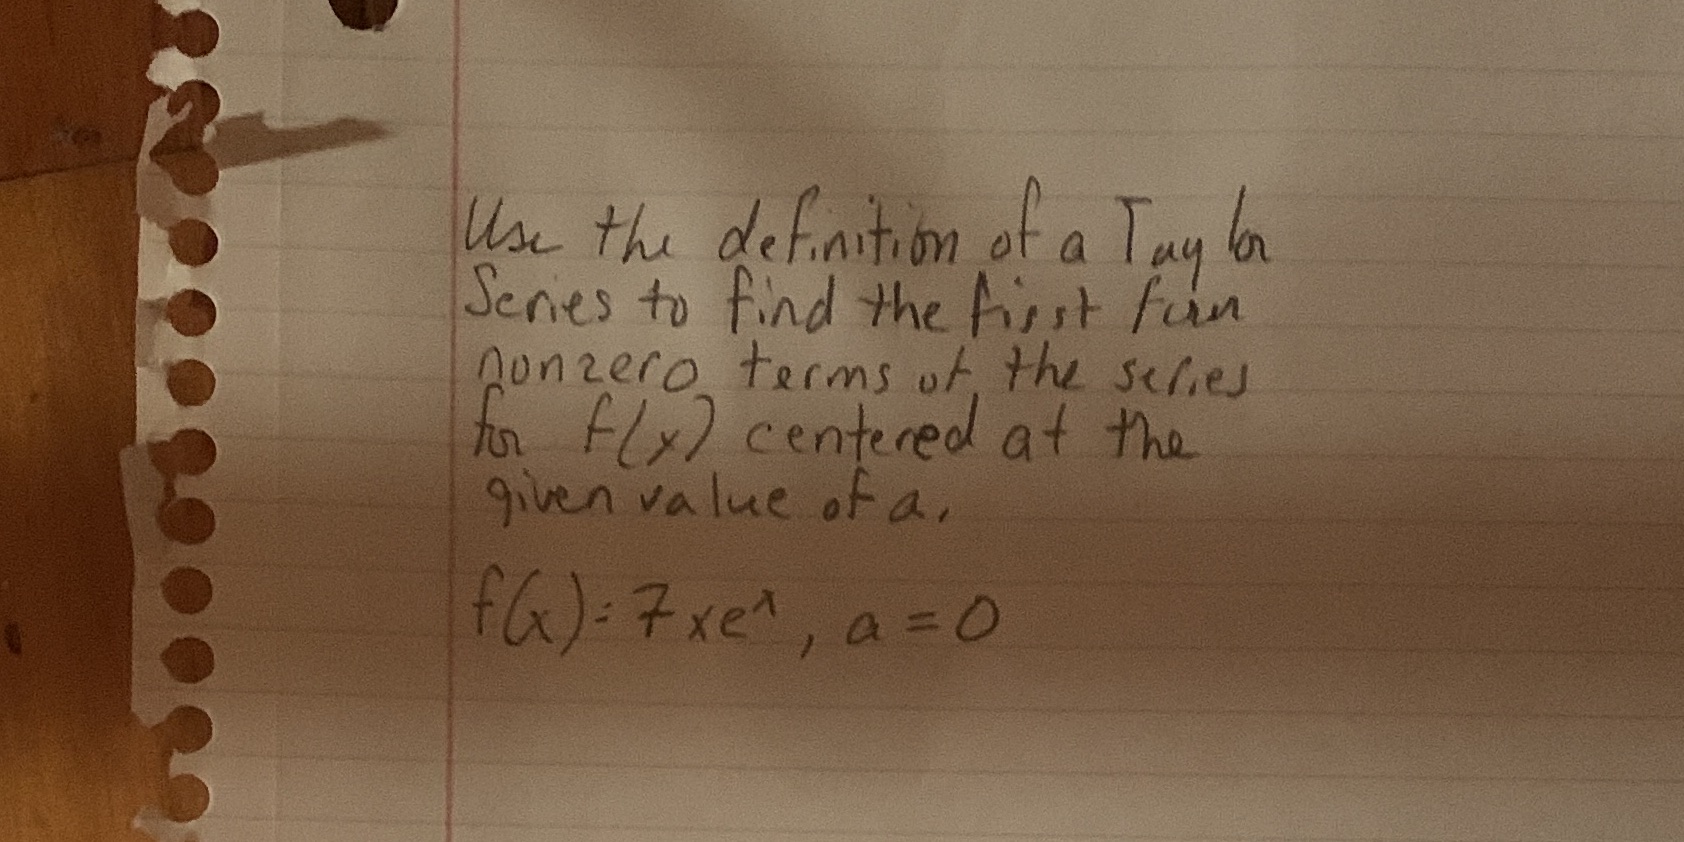 Use the definition of a Taylor
Series to find the first four
nonzero terms of the series
for f(x) centered at the
given value of a.
f(x) = 7xeˣ, a = 0